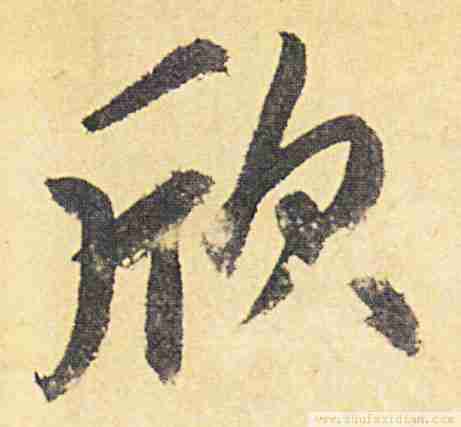 欣
www.shufazidian.com